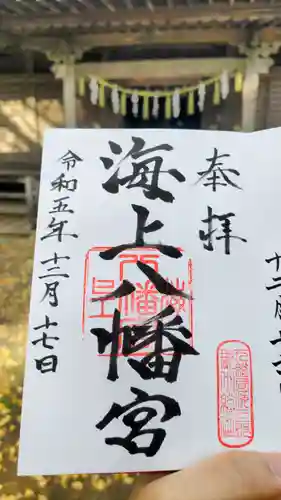 奉拝
海上八幡宮
令和五年十二月十七日
十二月